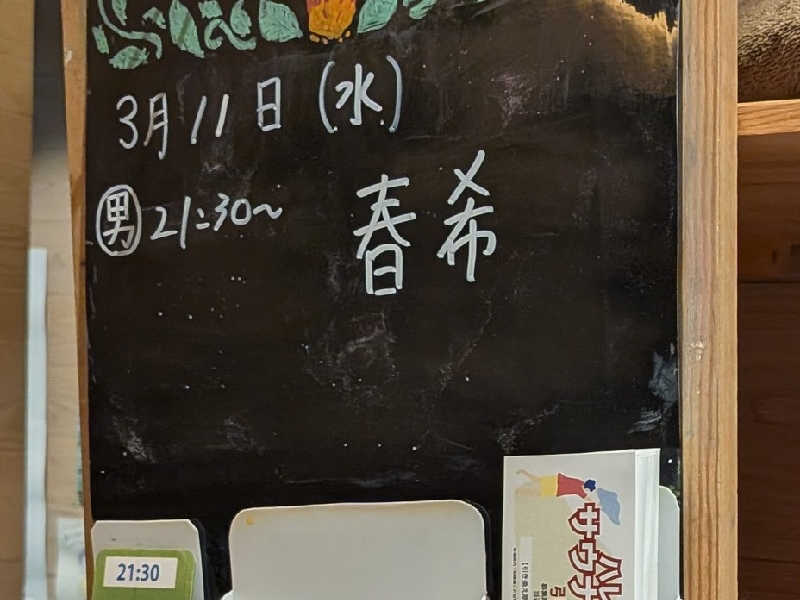 3月11日(水)
男 21:30〜 春希
21:30
サウナ